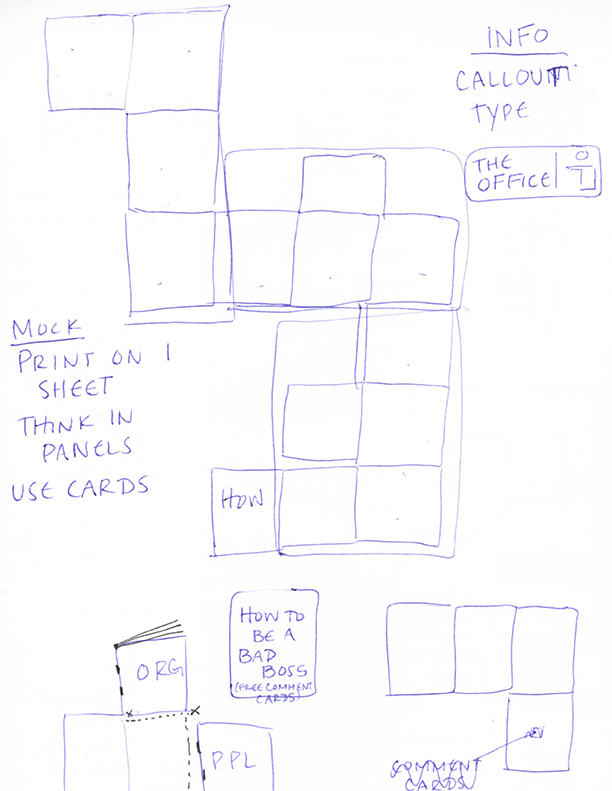 INFO
CALLOUT
TYPE
THE
OFFICE
MOCK
PRINT ON 1
SHEET
THINK IN
PANELS
USE CARDS
HOW
HOW TO
BE A
BAD
BOSS
(FREE COMMENT
CARDS)
ORG
PPL
COMMENT
CARDS